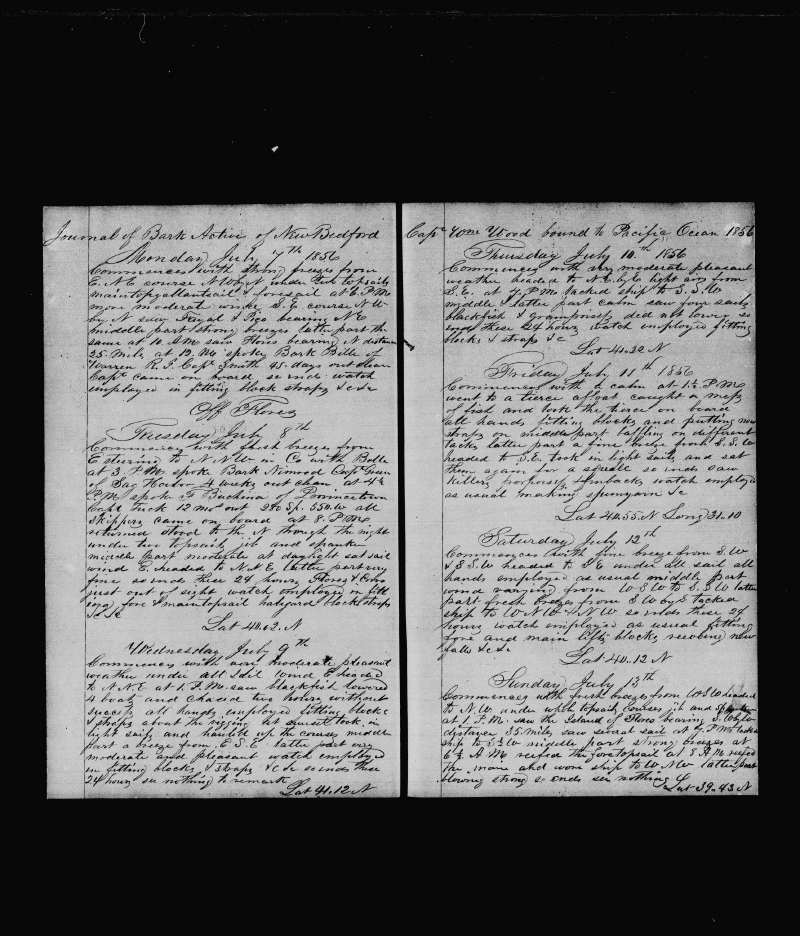 Journal of Bark Active of New Bedford
Monday July 7th 1856
Commences with strong breezes from
E.N.E course N by W under topsails
maintopgallantsail & foresail at 6 P.M
more moderate wind S.E. course N W
by N saw Fayal & Pico bearing N E
middle part strong breezes latter part the
same at 10 A M saw Flores bearing N distan
25 Miles at 12 M spoke Bark Belle of
Warren R.I. Capt Smith 45 days out clean
Capt came on board so ends watch
employed in fitting block straps &c &c
Off Flores
Tuesday July 8th
Commences with fresh breezes from
E steering N N W in Co with Belle
at 3 P M spoke Bark Nimrod Capt
of Sag Harbor 4 weeks out clean at 4½
P.M spoke of Provincetown
Capt Tuck 12 mos out 280 Sp. 550 W all
Skippers came on board at 8 P M
returned stood to the N through the night
under two topsails jib and spanker
middle part moderate at daylight set sail
wind E. headed to N N E latter part very
fine so ends these 24 hours Flores & Corvo
just out of sight watch employed in fitt
ing fore & maintopsail halyard blocks straps
&c &c
Lat 40.02 N
Wednesday July 9th
Commences with very moderate pleasant
weather under all sail wind E headed
to N N E at 1 P.M. saw blackfish lowered
4 boats and chased two hours without
success all hands employed fitting blocks
& straps about the rigging at sunset took in
light sails and hauled up the courses middle
part a breeze from E S E latter part very
moderate and pleasant watch employed
in fitting blocks & straps &c &c so ends these
24 hours see nothing to remark
Lat 41.12 N
Capt Wm Wood bound to Pacific Ocean 1856
Thursday July 10th 1856
Commences with very moderate pleasant
weather headed to N.E. by E light airs from
S.E. at 4 P.M. tacked ship to S.S.W
middle & latter part calm saw four sails
blackfish & did not lower so
ends these 24 hours watch employed fitting
blocks & straps &c
Lat 41.32 N
Friday July 11th 1856
Commences with a calm at 1½ P M
went to a tierce afloat caught a mess
of fish and took the tierce on board
all hands fitting blocks and putting new
straps on middle part baffling on different
tacks latter part a fine breeze from S.S.W
headed to S.E. took in light sails and set
them again for a squall so ends saw
killers porpoises finbacks watch employed
as usual making spunyarn &c
Lat 40.55 N Long 31.10
Saturday July 12th
Commences with fine breeze from S.W
& S S.W headed to S E under all sail all
hands employed as usual middle part
wind varying from W S W to S.S.W latter
part fresh breezes from S W by S tacked
ship to W N W & N W so ends these 24
hours watch employed as usual fitting
fore and main lifts blocks reeving new
falls &c &c
Lat 40.12 N
Sunday July 13th
Commences with fresh breezes from W S W headed
to N.W under topsails courses jib and spanker
at 1 P.M. saw the Island of Flores bearing S W by W
distance 35 miles saw several sail at 7 P M tacked
ship to middle part strong breezes at
6½ A M reefed the foretopsail at 8 A M reefed
the main and wore ship to W N W latter part
blowing strong so ends see nothing
Lat 39.43 N